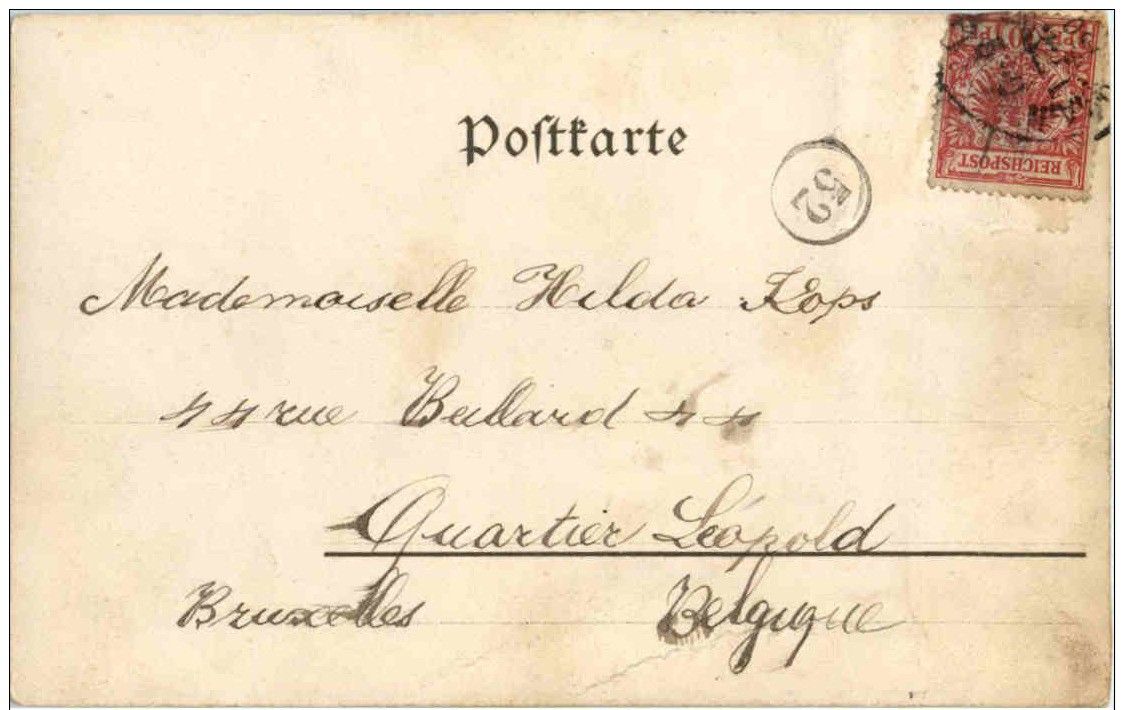 Postkarte
REICHSPOST
52
Mademoiselle Hilda Kops
44 rue Beillard 44
Quartier Léopold
Bruxelles Belgique